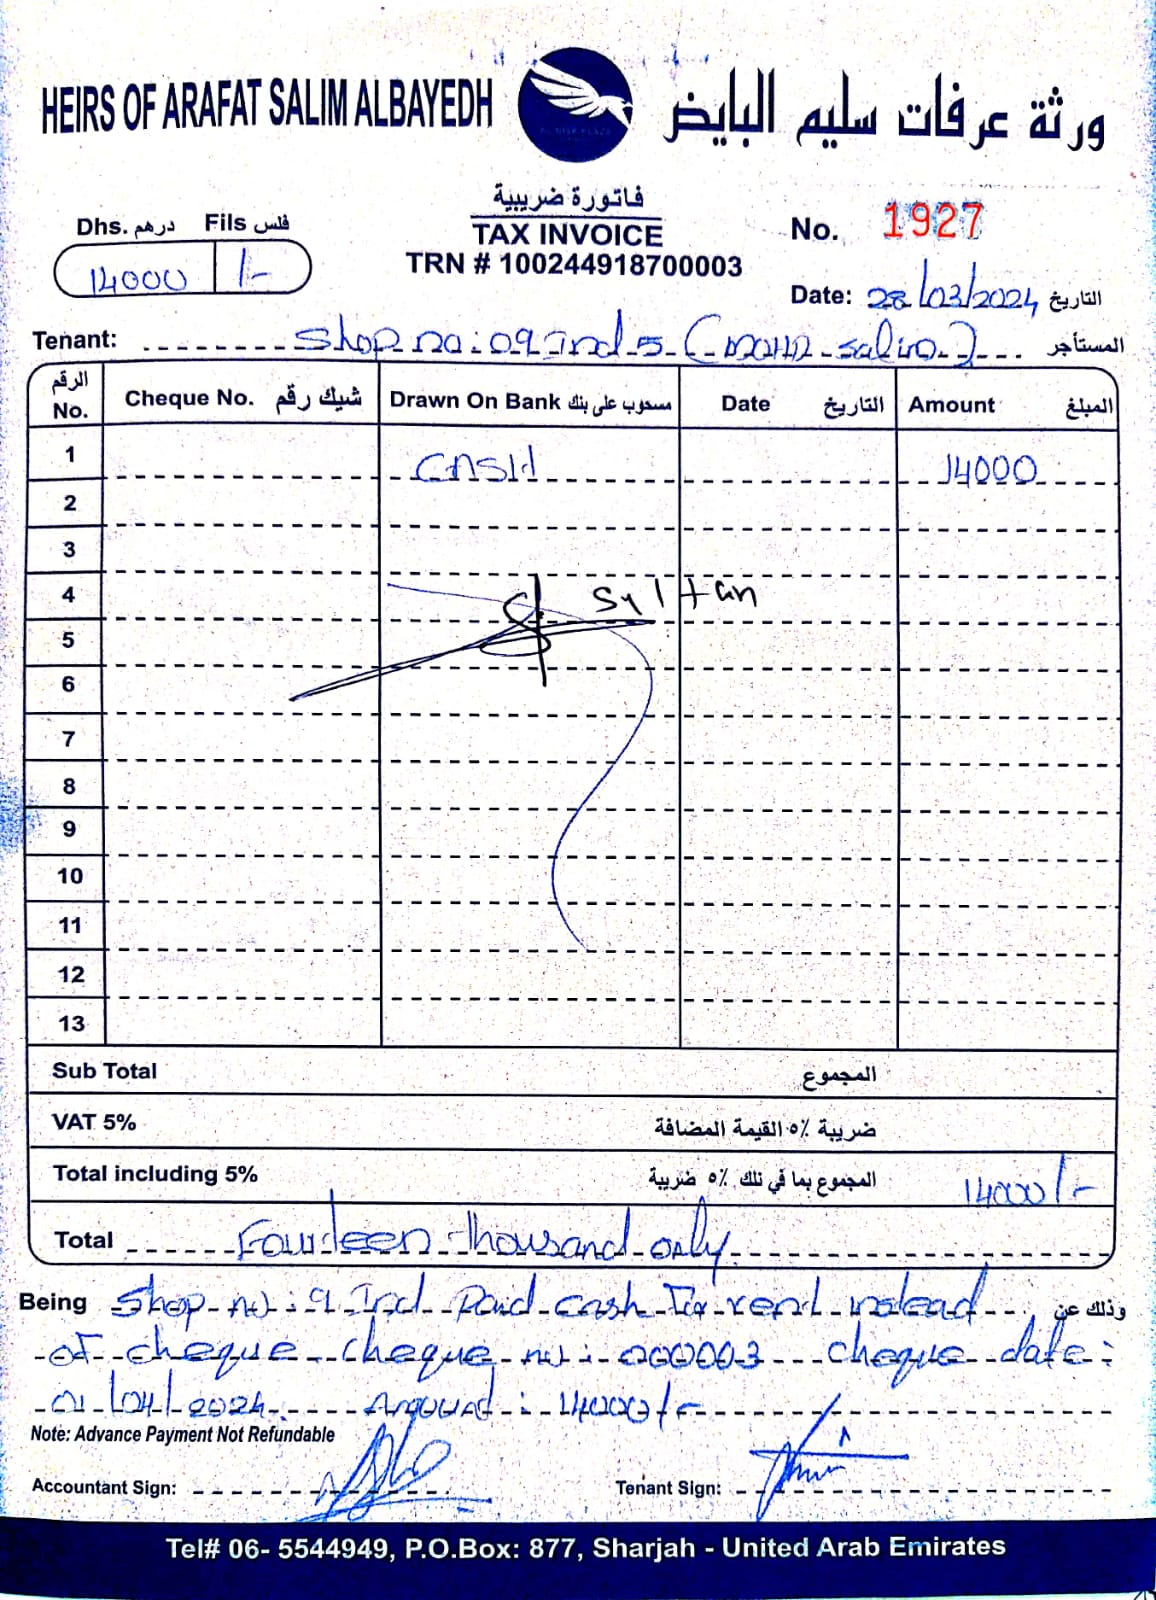 HEIRS OF ARAFAT SALIM ALBAYEDH
ورثة عرفات سليم البايض
فاتورة ضريبية
TAX INVOICE
TRN # 100244918700003
Dhs. درهم Fils فلس
14000 /-
No. 1927
Date: 28/03/2024 التاريخ
Tenant: Shop no: 09 Ind 5 ( ) المستأجر
الرقم No. Cheque No. شيك رقم Drawn On Bank مسحوب على بنك Date التاريخ Amount المبلغ
1 CASH 14000
2
3
4 Sultan
5
6
7
8
9
10
11
12
13
Sub Total المجموع
VAT 5% ضريبة ٥٪ القيمة المضافة
Total including 5% المجموع بما في ذلك ٥٪ ضريبة 14000/-
Total Fourteen thousand only
Being Shop no: 9 Ind Paid cash for rent instead وذلك عن
of cheque cheque no: 000003 cheque date:
01/04/2024 Amount: 14000/-
Note: Advance Payment Not Refundable
Accountant Sign: Tenant Sign:
Tel# 06- 5544949, P.O.Box: 877, Sharjah - United Arab Emirates